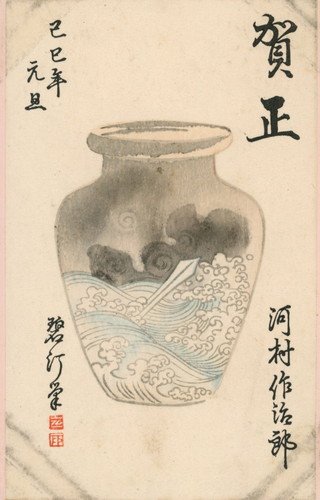 賀正
河村作治郎
己巳年
元旦
碧汀筆